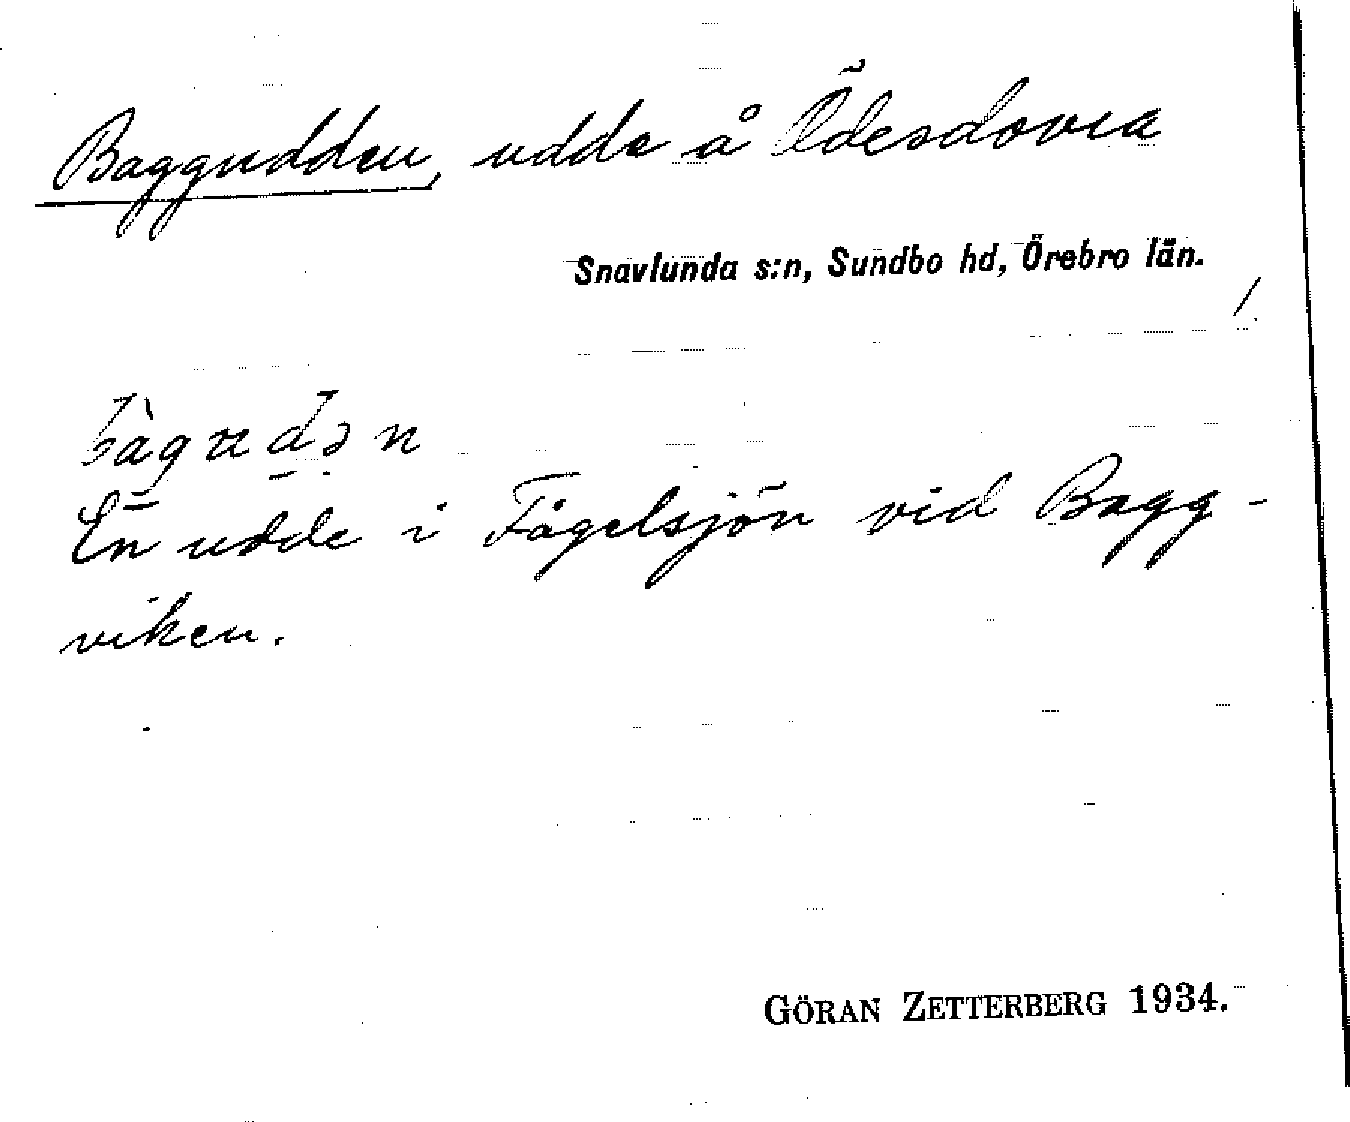 Baggudden, udde å Ödesdovra
Snavlunda s:n, Sundbo hd, Örebro län.
/.
En udde i Fågelsjön vid Bagg-
viken.
GÖRAN ZETTERBERG 1934.